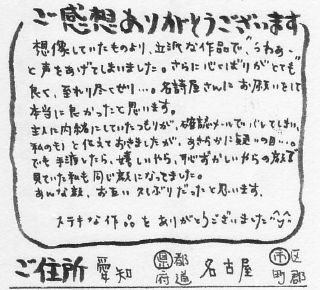 ご感想ありがとうございます
想像していたものより、立派な作品で、"うわぁ〜"
と声をあげてしまいました。さらに心くばりがとても
良くて、至れり尽くせり…。名詩屋さんにお願いをして
本当に良かったと思います。
主人に内緒にしていたつもりが、確認メールでバレてしまい、
私のもりと伝えておきましたが、あきらかに疑いの目…。
でも手渡したら、嬉しいやら、恥ずかしいやらの顔で
見ていた私も同じ顔になってました。
あんな顔、お互い久しぶりだったと思います。
ステキな作品をありがとうございました^▽^
ご住所 愛知 県 都府道 名古屋 市 区町郡